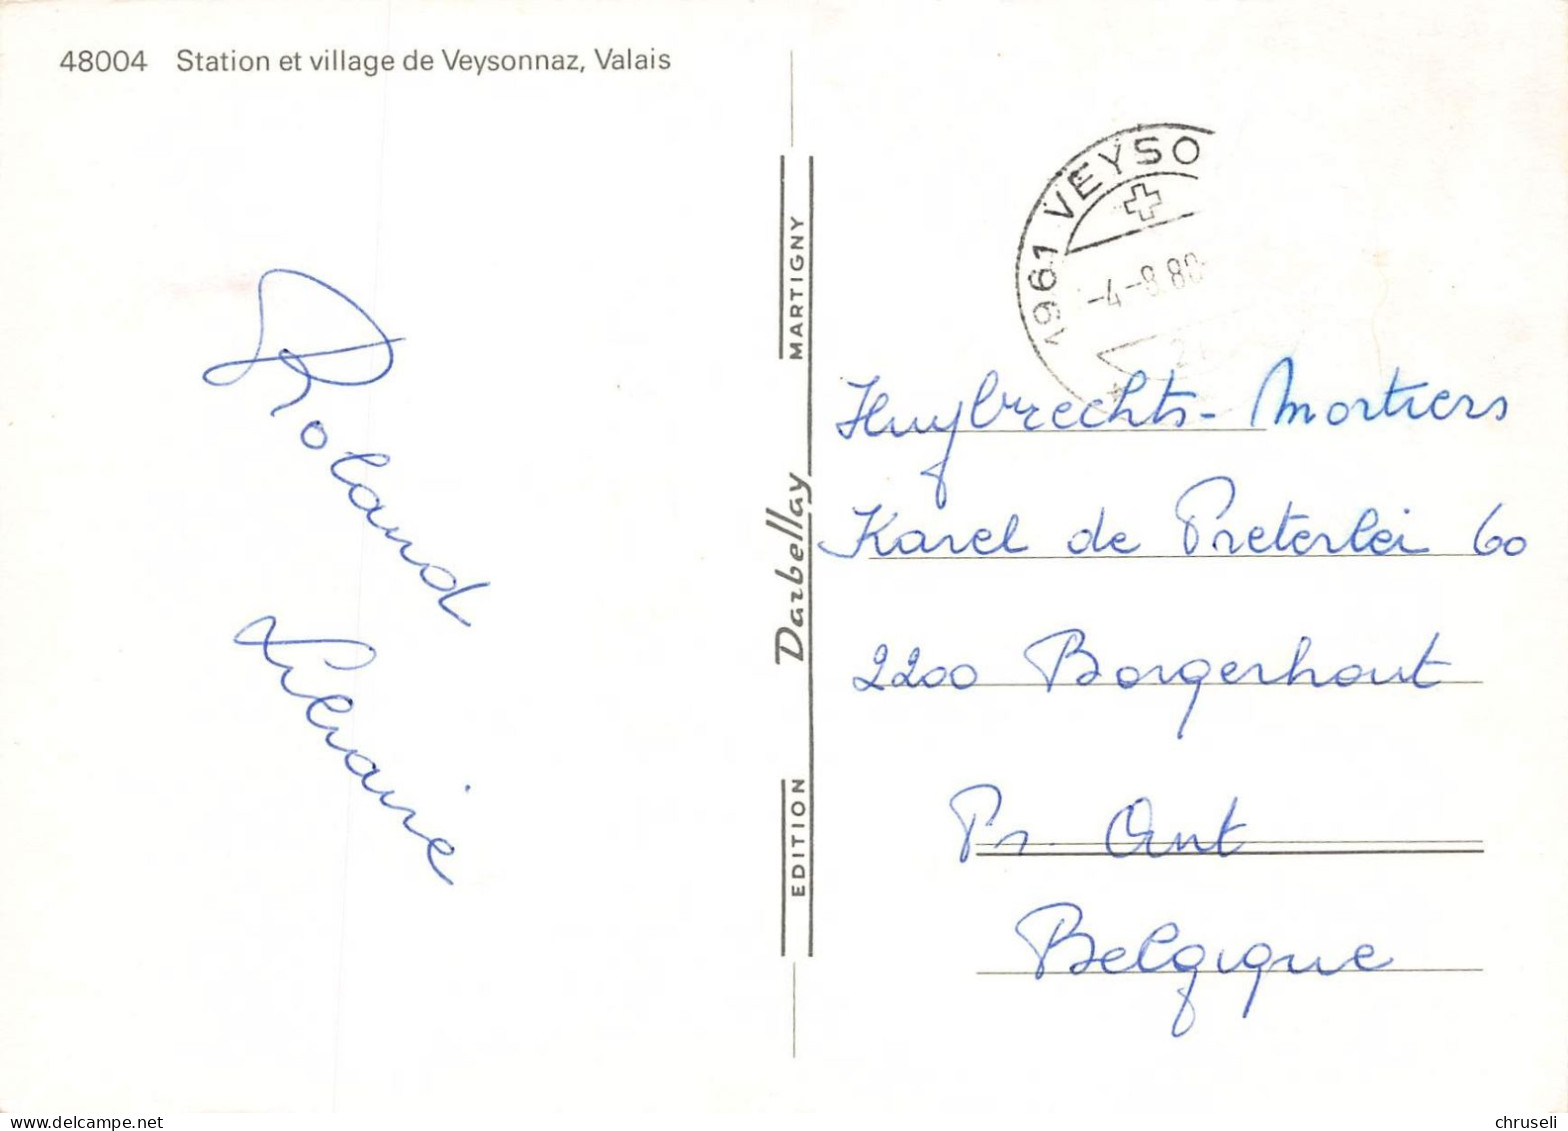 48004 Station et village de Veysonnaz, Valais
Roland
Liliane
EDITION Darbellay MARTIGNY
1961 VEYSO
-4-8.80-
Huybrechts - Mortiers
Karel de Preterlei 60
2200 Borgerhout
Pr. Ant
Belgique
www.delcampe.net
chruseli